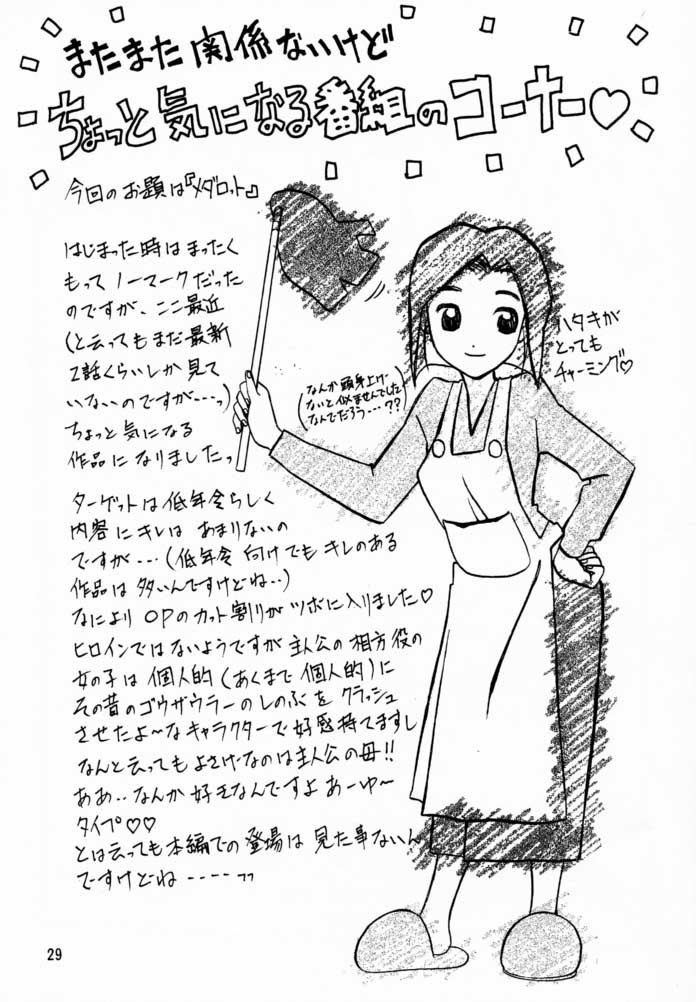 またまた関係ないけど
ちょっと気になる番組のコーナー♡
今回のお題は『メダロット』
はじまった時はまったく
もってノーマークだった
のですが、ここ最近
(と云ってもまだ最新
2話くらいしか見て
いないのですが---っ)
ちょっと気になる
作品になりましたっ
(なんか頭身上げ
ないと似ませんでした
なんでだろう・・・??)
ハタキが
とっても
チャーミング♡
ターゲットは低年令らしく
内容にキレはあまりないの
ですが・・・(低年令向けでもキレのある
作品は多いんですけどね・・)
なによりOPのカット割りがツボに入りました♡
ヒロインではないようですが主人公の相方役の
女の子は個人的(あくまで個人的)に
その昔のゴウザウラーのしのぶをクラッシュ
させたよ〜なキャラクターで好感持てますし
なんと云ってもよさげなのは主人公の母!!
ああ・・なんか好きなんですよあーゆ〜
タイプ♡♡
とは云っても本編での登場は見た事ないん
ですけどね----っっ
29